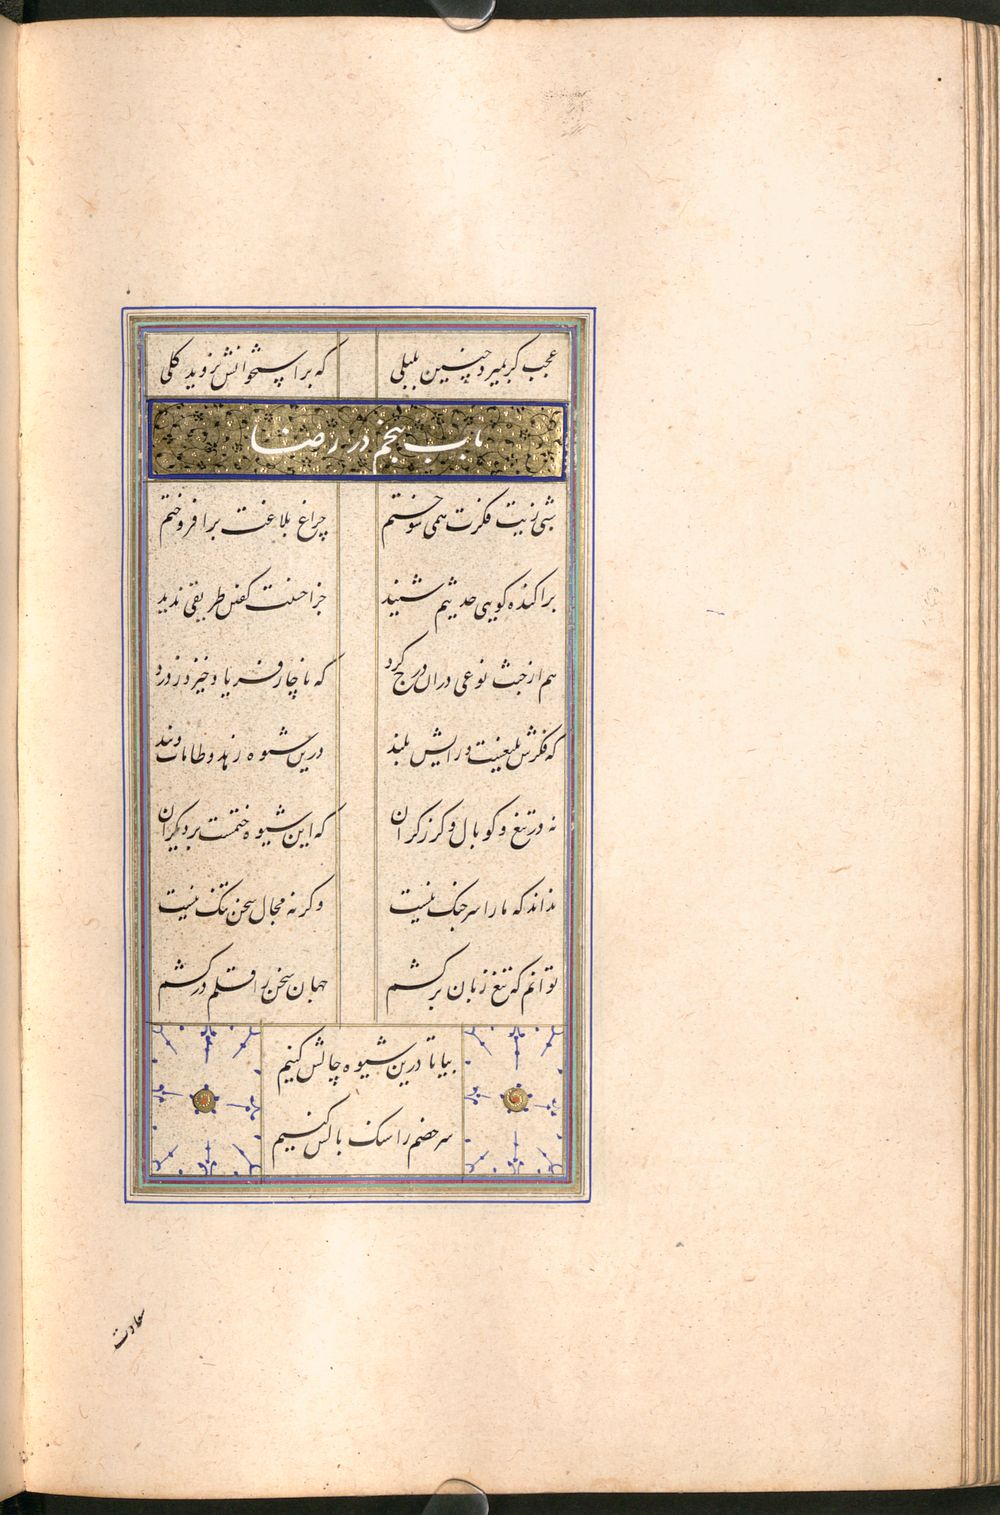 عجب کر بمیرد چنین بلبلی که بر استخوانش نروید کلی
باب پنجم در رضا
شبی زیت فکرت همی سوختم چراغ بلاغت برافروختم
پراکنده کویی حدیثم شنید جز احسنت کفتن طریقی ندید
هم از خبث نوعی دران درج کرد که ناچار فریاد خیزد ز درد
که فکرش بلیغست و رایش بلند درین شیوه زهد و طامات و پند
نه در تیغ و کوپال و کرز کران که این شیوه ختمست بر دیکران
نداند که ما را سر جنک نیست وکرنه مجال سخن تنک نیست
توانم که تیغ زبان برکشم جهان سخن را قلم درکشم
بیا تا درین شیوه چالش کنیم
سر خصم را سنک بالش کنیم
سعادت